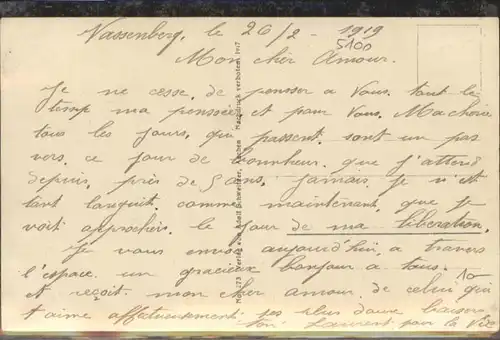 Vassenberg, le 26/2 - 1919
5100
Mon cher Amour.
Je ne cesse, de pensser a Vous. tout le
temp ma pensseé et pour Vous. Ma choire
tous les jours, qui passent. sont un pas
vers. ce jour de bonnheur. que j'attend
depuis, près de 5 ans. jamais. Je n'et
tant languit. comme maintenant, que je
voit approcher. le jour de ma liberation.
Je vous envoi aujourd'hui, a travers
l'espace. un gracieux bonjour a tous.
10-
et reçoit. mon cher amour de celui qui
t'aime affectueusement. ses plus doux baiser
ton Laurent pour la Vie
Verlag von Adolf Schweitzer, Aachen Nachdruck verboten 1917